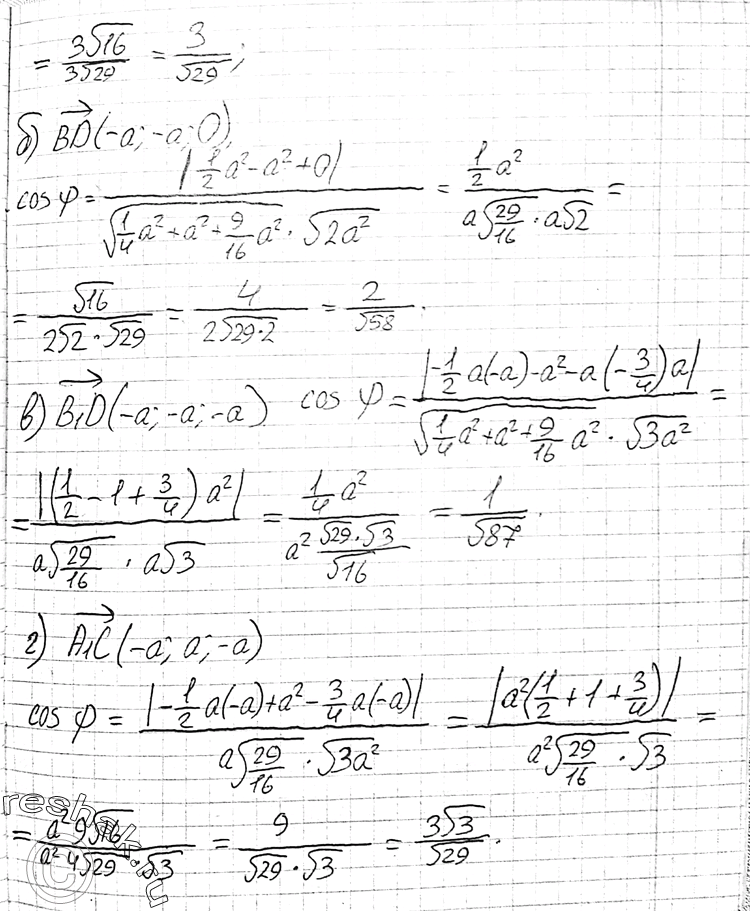 = 3√16/3√29 = 3/√29;
б) BD⃗(-a; -a; 0),
cos φ = |1/2 a² - a² + 0| / (√(1/4 a² + a² + 9/16 a²) · √(2a²)) = 1/2 a² / (a√(29/16) · a√2) =
= √16/(2√2 · √29) = 4/(2√(29·2)) = 2/√58.
в) B₁D⃗(-a; -a; -a) cos φ = |-1/2 a(-a) - a² - a(-3/4)a| / (√(1/4 a² + a² + 9/16 a²) · √(3a²)) =
= |(1/2 - 1 + 3/4) a²| / (a√(29/16) · a√3) = 1/4 a² / (a² √29·√3/√16) = 1/√87.
г) A₁C⃗(-a; a; -a)
cos φ = |-1/2 a(-a) + a² - 3/4 a(-a)| / (a√(29/16) · √(3a²)) = |a²(1/2 + 1 + 3/4)| / (a²√(29/16) · √3) =
= a² 9√16/(a² 4√29 · √3) = 9/(√29 · √3) = 3√3/√29.
reshak.ru